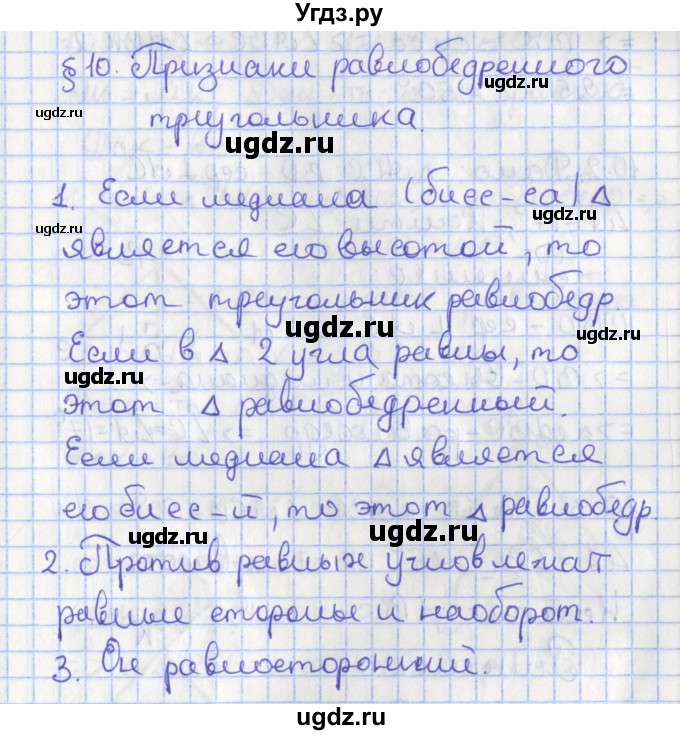 Угдз.ру
§ 10. Признаки равнобедренного
треугольника.
1. Если медиана (бисс-са) Δ
является его высотой, то
этот треугольник равнобедр.
Если в Δ 2 угла равны, то
этот Δ равнобедренный.
Если медиана Δ является
его бисс-й, то этот Δ равнобедр.
2. Против равных углов лежат
равные стороны и наоборот.
3. Он равносторонний.
ugdz.ru
ugdz.ru
ugdz.ru
ugdz.ru
ugdz.ru
ugdz.ru
ugdz.ru
ugdz.ru
ugdz.ru
ugdz.ru
ugdz.ru
ugdz.ru
ugdz.ru
ugdz.ru